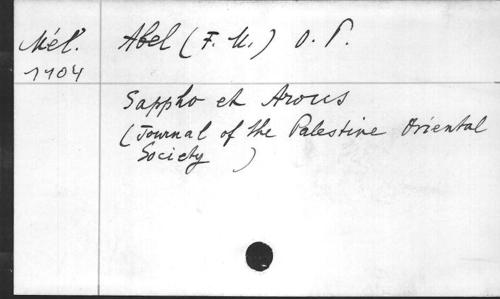 Mél. Abel (F. M.) O. P.
1704
Sappho et Arous
(Journal of the Palestine Oriental
Society )